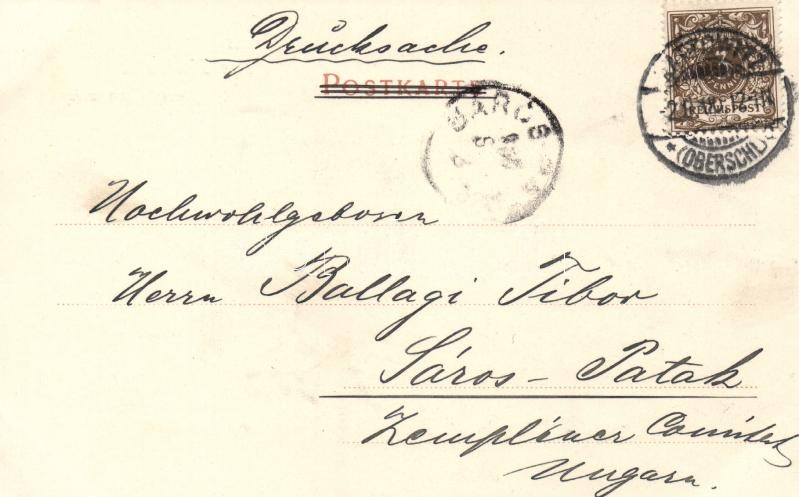 Drucksache.
POSTKARTE
3
REICHSPOST
(OBERSCHL)
Hochwohlgeboren
Herrn Ballagi Tibor
Sáros-Patak
Zempliner Comitat
Ungarn.